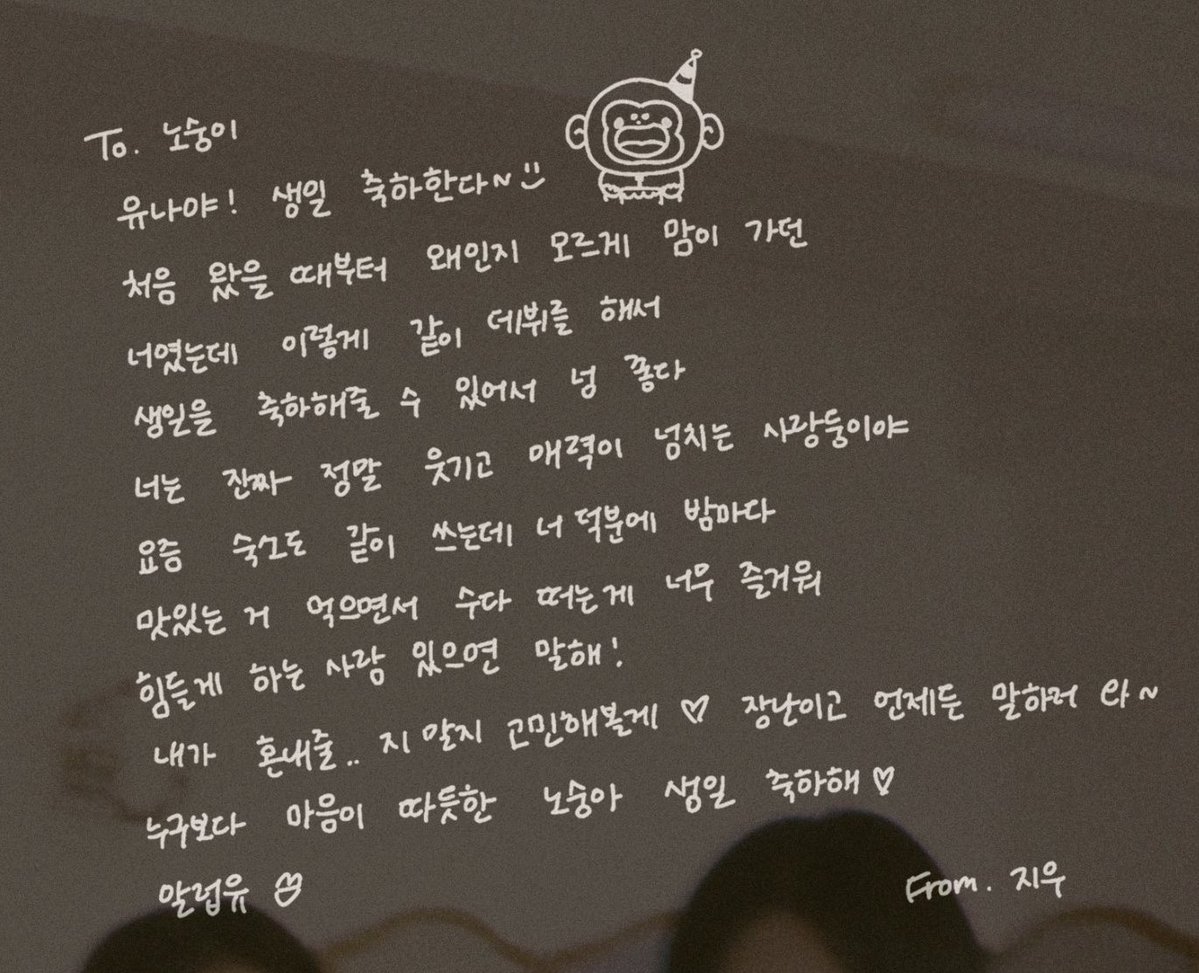 To. 노숭이
유나야! 생일 축하한다~
처음 왔을 때부터 왜인지 모르게 맘이 가던
너였는데 이렇게 같이 데뷔를 해서
생일을 축하해줄 수 있어서 넘 좋다
너는 진짜 정말 웃기고 매력이 넘치는 사랑둥이야
요즘 숙소도 같이 쓰는데 너 덕분에 밤마다
맛있는 거 먹으면서 수다 떠는게 너무 즐거워
힘들게 하는 사람 있으면 말해!
내가 혼내줄.. 지 말지 고민해볼게 ♡ 장난이고 언제든 말하러 와~
누구보다 마음이 따듯한 노숭아 생일 축하해♡
알럽유
From. 지우